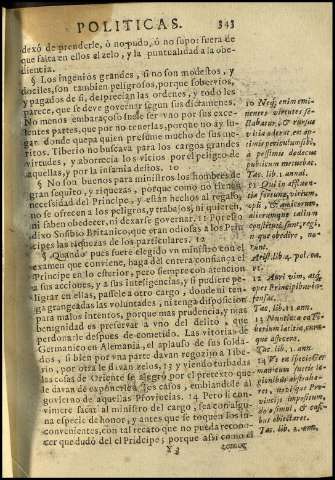 POLITICAS. 343
dexò de prenderle, ò no pudo, ò no supo: fuera de
que falta en ellos el zelo, y la puntualidad a la obe-
diencia.
§ Los ingenios grandes, si no son modestos, y
dociles, son tambien peligrosos, porque sobervios,
y pagados de sì, desprecian las ordenes, y todo les
parece, que se deve governar segun sus dictamenes.
No menos embaraçoso suele ser uno por sus exce-
lentes partes, que por no tenerlas, porque no ay lu-
gar donde quepa quien presume mucho de sus me-
ritos. Tiberio no buscava para los cargos grandes
virtudes, y aborrecia los vicios por el peligro de
aquellas, y por la infamia destos. 10
§ No son buenos para ministros los hombres de
gran sequito, y riquezas, porque como no tienen
necessidad del Principe, y estàn hechos al regalo,
no se ofrecen a los peligros, y trabajos, ni quieren,
ni saben obedecer, ni dexarse governar. 11 Por esso
dixo Sosibio Britanico, que eran odiosas a los Prin-
cipes las riquezas de los particulares. 12
§ Quando pues fuere elegido un ministro con el
examen que conviene, haga dèl entera confiança el
Principe en lo esterior, pero siempre con atencion
a sus acciones, y a sus inteligencias, y si pudiere pe-
ligrar en ellas, passele a otro cargo, donde ni ten-
ga grangeadas las voluntades, ni tenga disposicion
para malos intentos, porque mas prudencia, y mas
benignidad es preservar a uno del delito, que
perdonarle despues de cometido. Las vitorias de
Germanico en Alemania, el aplauso de sus solda-
dos, si bien por una parte davan regozijo a Tibe-
rio, por otra le davan zelos, 13 y viendo turbadas
las cosas de Oriente se alegrò por el pretexto que
le davan de exponerle a los casos, embiandole al
govierno de aquellas Provincias. 14 Pero si con-
viniere sacar al ministro del cargo, sea con algu-
na especie de honor, y antes que se toquen los in-
convenientes, con tal recato que no pueda recono-
cer que dudò dèl el Principe; porque assi como el
Y 4 temor
10 Neque enim emi-
nentes virtutes se-
ctabatur, & rursus
vitia oderat, ex op-
timis periculum sibi,
à pessimis dedecus
publicum metuebat.
Tac. lib. 1. annal.
11 Qui in affluen-
tia fortunæ, virium,
opũ, & amicorum,
aliorumque talium
constituti sunt, regi,
atque obedire, no-
lunt.
Arist. lib. 4. pol.
12 Auri vim, atq́;
opes Principibus in-
fensas.
Tac. lib. 11. ann.
13 Nuntiata ea Ti-
berium lætitia, cura-
que affecere.
Tac. lib. 1. ann.
14 Ut ea specie
Germanicum suetis le-
gionibus abstrahe-
ret, novisque Pro-
vincijs impositum,
dolo simul, & casi-
bus obiectaret.
Tac. lib. 2. ann.